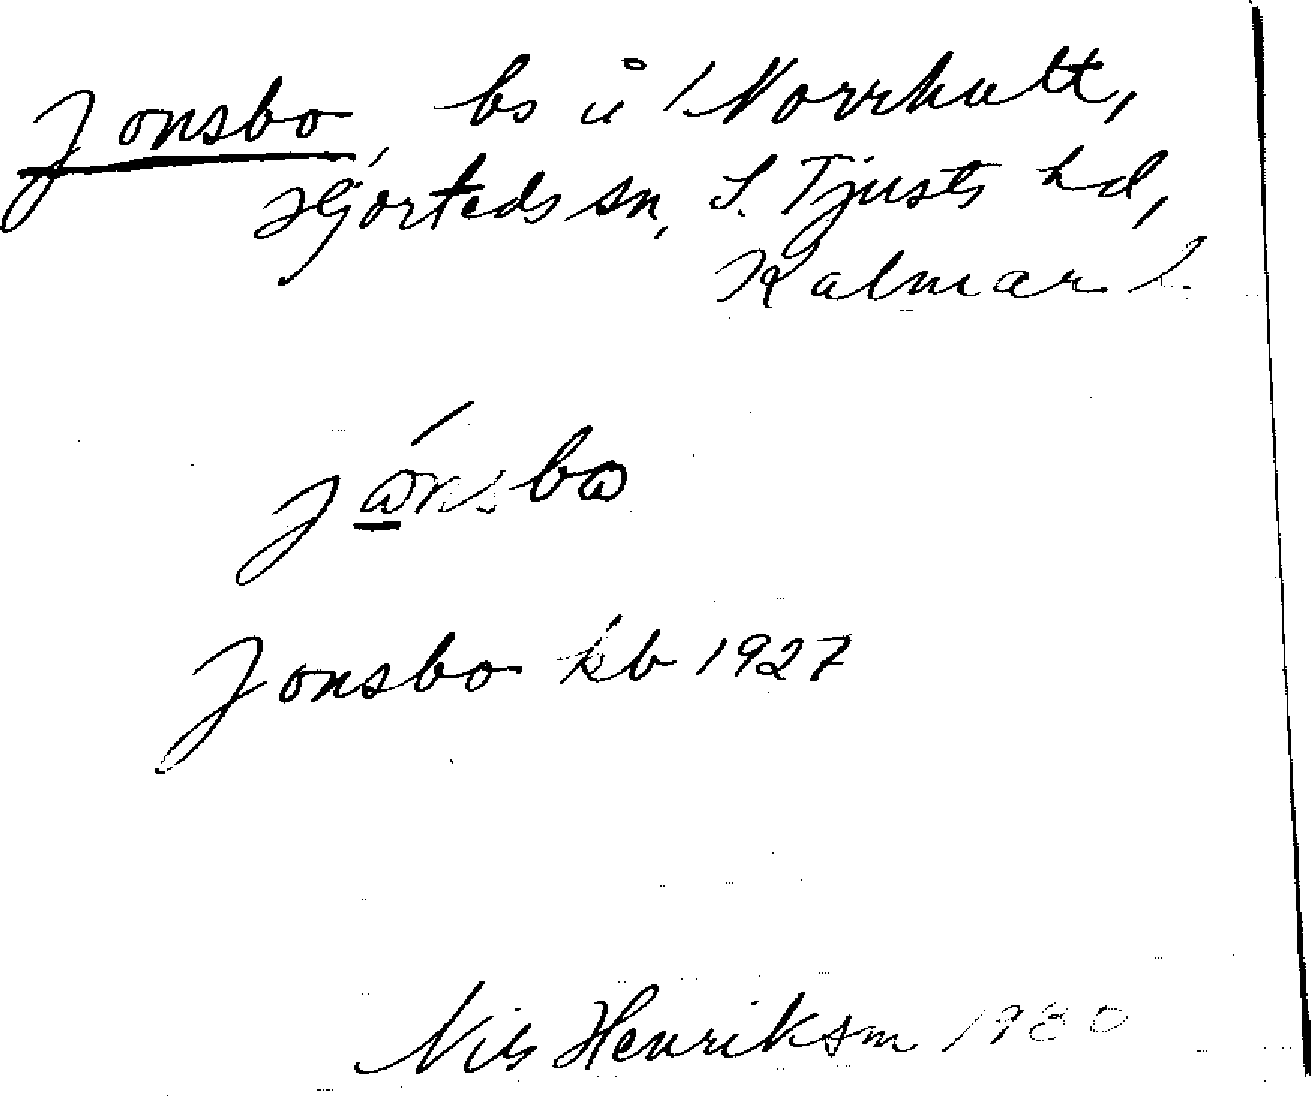 Jonsbo, bs å Norrhult,
Hjorteds sn, S. Tjusts hd,
Kalmar l.
Jonsbo kb 1927
Nils Henriksm 1980